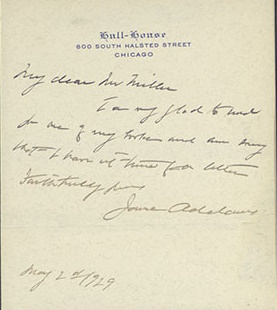 Hull-House
800 SOUTH HALSTED STREET
CHICAGO
My dear Mr Miller
I am very glad to send
you one of my books and am sorry
that I have not time for a letter
Faithfully yours
Jane Addams
May 2d 1929